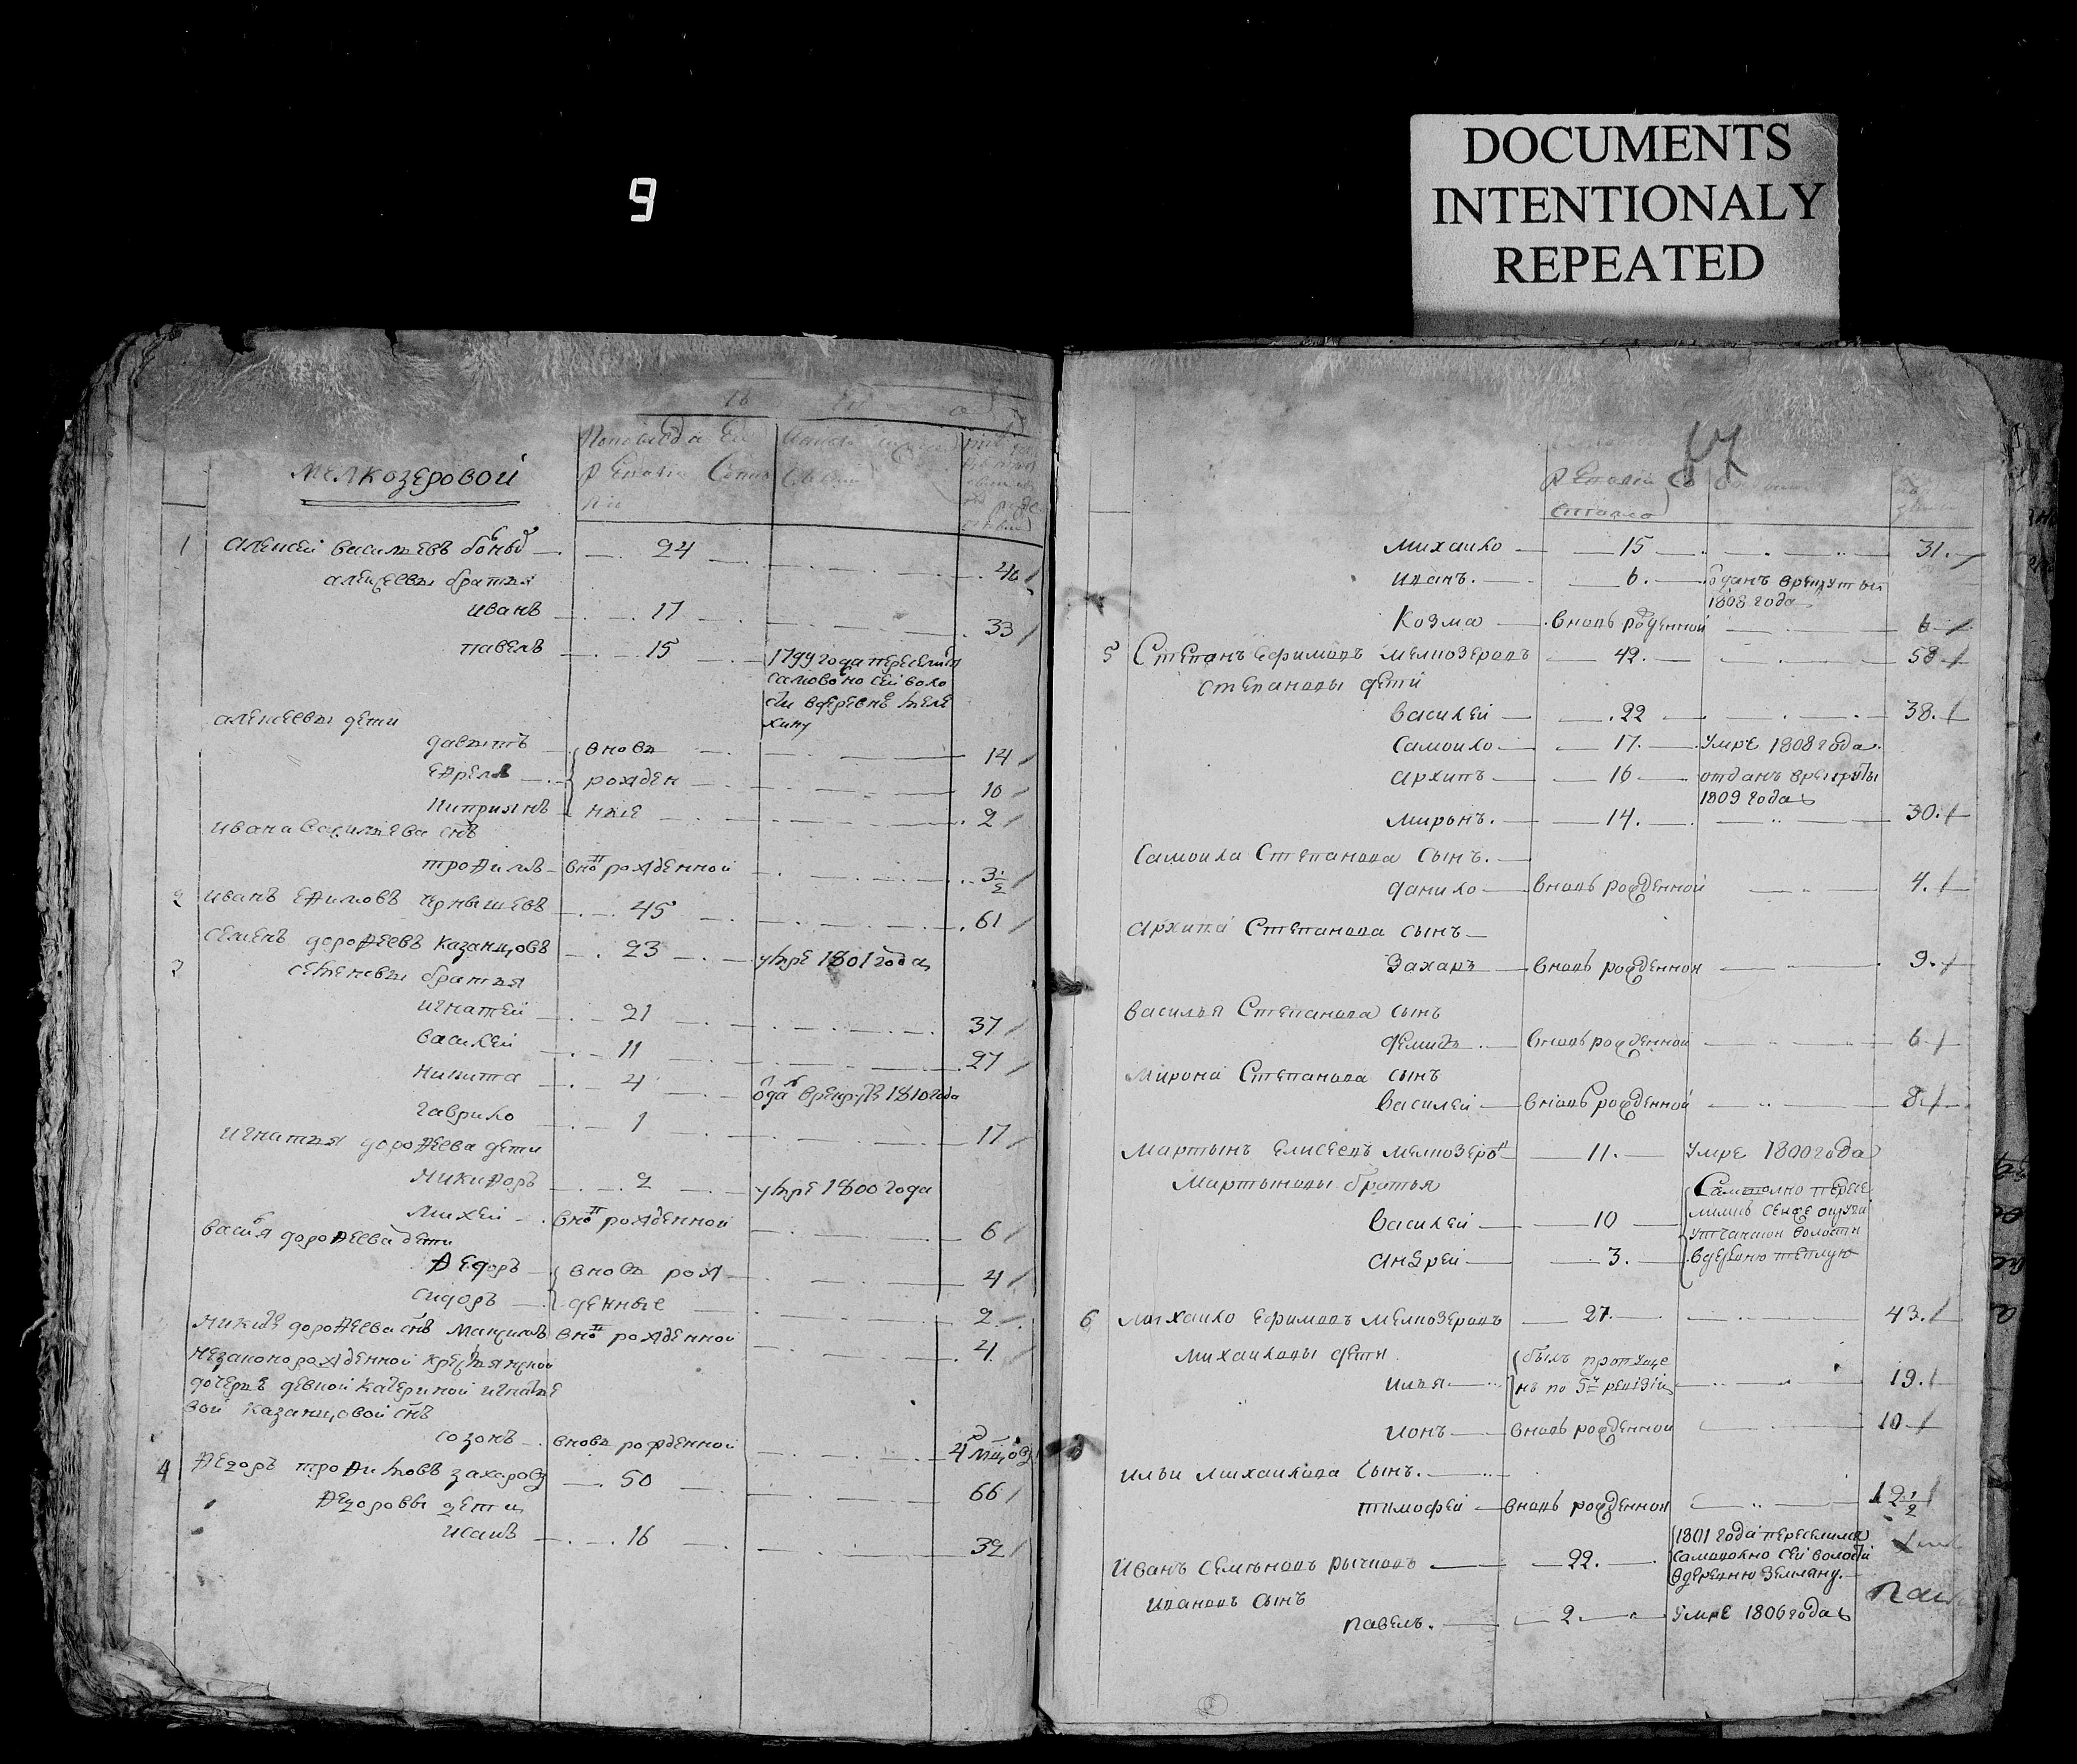 DOCUMENTS
INTENTIONALY
REPEATED
9
Мелкозеровой
1 алексей васильевъ 24 40
алексеевы братья
иванъ 17 33
павелъ 15 1799 года переселился
самовольно сей воло
сти в деревнъ теле
хину
алексеевы дети
давытъ вновь 14
Ефремъ рожден 10
Киприянъ ные 2
ивана васильева снъ
трофимъ внов рожденной 3 1/2
2 иванъ Ефимовъ чрнышевъ 45 61
3 семенъ дорофеевъ казанцовъ 23 умре 1801 года
семеновы братья
игнатей 21 37
василей 11 27
никита 4 1810 года
гаврило 1 17
игнатья дорофеева дети
никифоръ 2 умре 1800 года
михей внов рожденной 6
васия дорофеева дети
федоръ вновь рож 4
сидоръ денные 2
никиты дорофеева снъ максимъ внов рожденной 4
незаконорожденной крестьянской
дочеръ девкой катериной игнатье
вой казанцовой снъ
созонъ вновь рожденной 4 мцовъ
4 федоръ трофимовъ захаровъ 50 66
федоровы дети
исакъ 16 32
47
ревизии
состояло
михаило 15 31
иванъ 6 отданъ врекруты
1808 года
Козма вновь роденной 6
5 Степанъ Ефимовъ мелкозеровъ 42 58
степановы дети
василей 22 38
самоило 17 умре 1808 года
архипъ 16 отданъ врекруты
1809 года
миронъ 14 30
самоила Степанова сынъ
данило вновь рожденной 4
архипа Степанова сынъ
Захаръ вновь рожденной 9
василья Степанова сынъ
демидъ вновь рожденной 6
мирона Степанова сынъ
василей вновь рожденной 8
мартынъ елисеевъ мелкозеро 11 умре 1800 года
мартыновы братья Самовольно пересе
василей 10 лились
андрей 3 волости
вдеревню теплую
6 михаило ефимовъ мелкозеровъ 27 43
михаиловы дети былъ пропуще
илья нъ по 5й ревизіи 19
ионъ вновь рожденной 10
ильи михаилова сынъ
тимофей вновь рожденной 1 2 1/2
1801 года переселился
Иванъ семеновъ рычковъ 22 самовольно сей волости
вдеревню земляну
ивановъ сынъ
павелъ 2 умре 1806 года